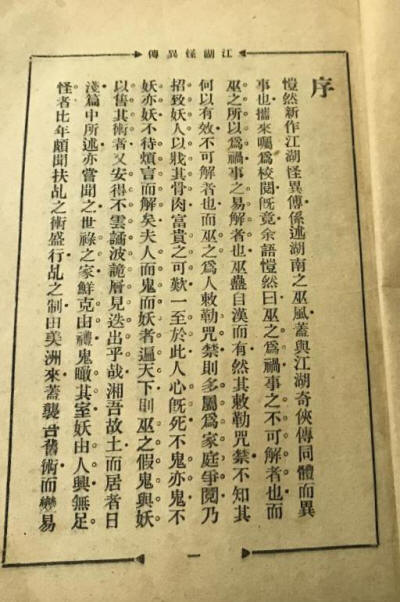 江湖怪異傳
序
愷然新作江湖怪異傳係述湖南之巫風蓋與江湖奇俠傳同體而異
事也攜來囑爲校閱旣竟余語愷然曰巫之爲禍事之不可解者也而
巫之所以爲禍事之易解者也巫蠱自漢而有然其敕勒咒禁不知其
何以有效不可解者也而巫之爲人敕勒咒禁則多屬爲家庭爭閱乃
招致妖人以戕其骨肉富貴之可歎一至於此人心旣死不鬼亦鬼不
妖亦妖不待煩言而解矣夫人而鬼而妖者遍天下則巫之假鬼與妖
以售其術者又安得不雲譎波詭層見迭出乎哉湘吾故土而居者日
淺篇中所述亦嘗聞之世祿之家鮮克由禮鬼瞰其室妖由人興無足
怪者比年頗聞扶乩之術盛行乩之制田美洲來蓋襲古舊術而變易
一